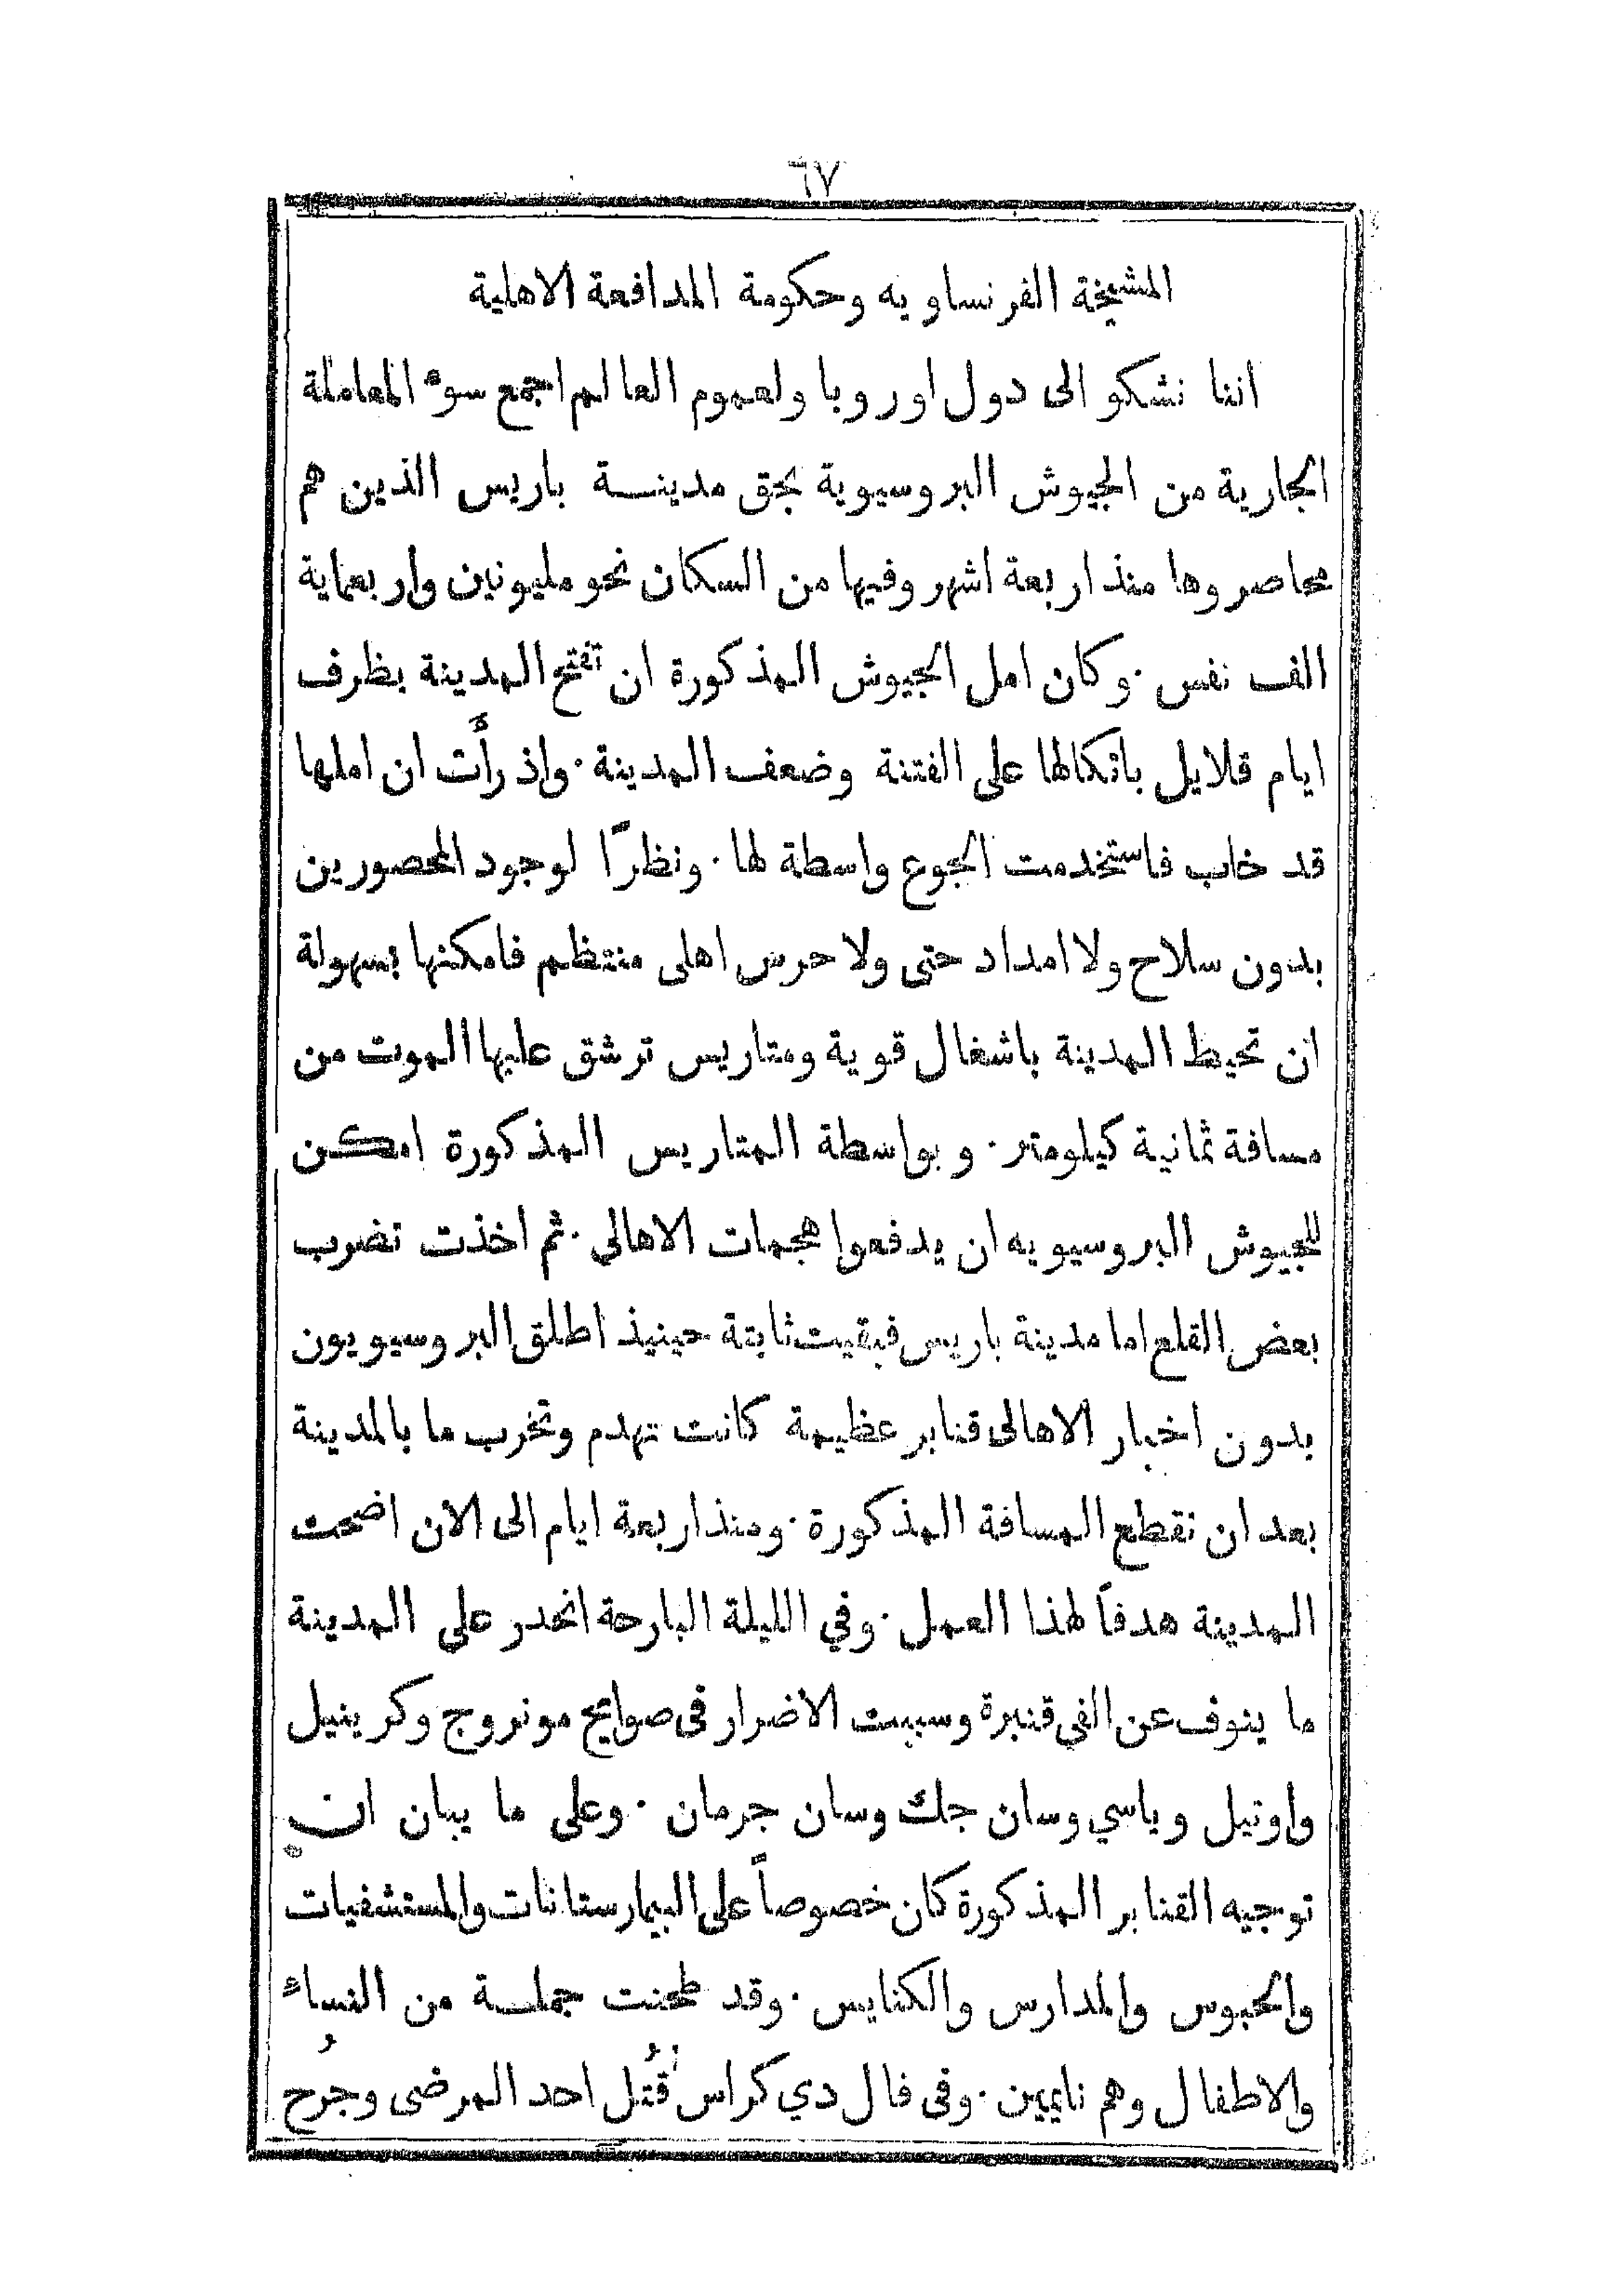 ٦٧
المشيخة الفرنساويه وحكومة المدافعة الاهلية
اننا نشكو الى دول اوروبا ولعموم العالم اجمع سوء المعاملة
الجارية من الجيوش البروسيوية بحق مدينة باريس الذين هم
محاصروها منذ اربعة اشهر وفيها من السكان نحو مليونين واربعماية
الف نفس ٠ وكان امل الجيوش المذكورة ان تفتح المدينة بظرف
ايام قلايل باتكالها على الفتنة وضعف المدينة ٠ واذ رأَت ان املها
قد خاب فاستخدمت الجوع واسطة لها ٠ ونظرًا لوجود المحصورين
بدون سلاح ولا امداد حتى ولا حرس اهلى منتظم فامكنها بسهولة
ان تحيط المدينة باشغال قوية ومتاريس ترشق عليها الموت من
مسافة ثمانية كيلومتر ٠ وبواسطة المتاريس المذكورة امكن
للجيوش البروسيويه ان يدفعوا هجمات الاهالى ٠ ثم اخذت تضرب
بعض القلع اما مدينة باريس فبقيت ثابتة حينيذ اطلق البروسيويون
بدون اخبار الاهالى قنابر عظيمة كانت تهدم وتخرب ما بالمدينة
بعد ان تقطع المسافة المذكورة ٠ ومنذ اربعة ايام الى الان اضحت
المدينة هدفاً لهذا العمل ٠ وفي الليلة البارحة انحدر على المدينة
ما ينوف عن الفى قنبرة وسببت الاضرار فى صوايح مونروج وكرينيل
واوتيل وياسي وسان جك وسان جرمان ٠ وعلى ما يبان ان
توجيه القنابر المذكورة كان خصوصاً على البيمارستانات والمستشفيات
والحبوس والمدارس والكنايس ٠ وقد طحنت جملة من النساء
والاطفال وهم نايمين ٠ وفى فال دي كراس قُتل احد المرضى وجُرح